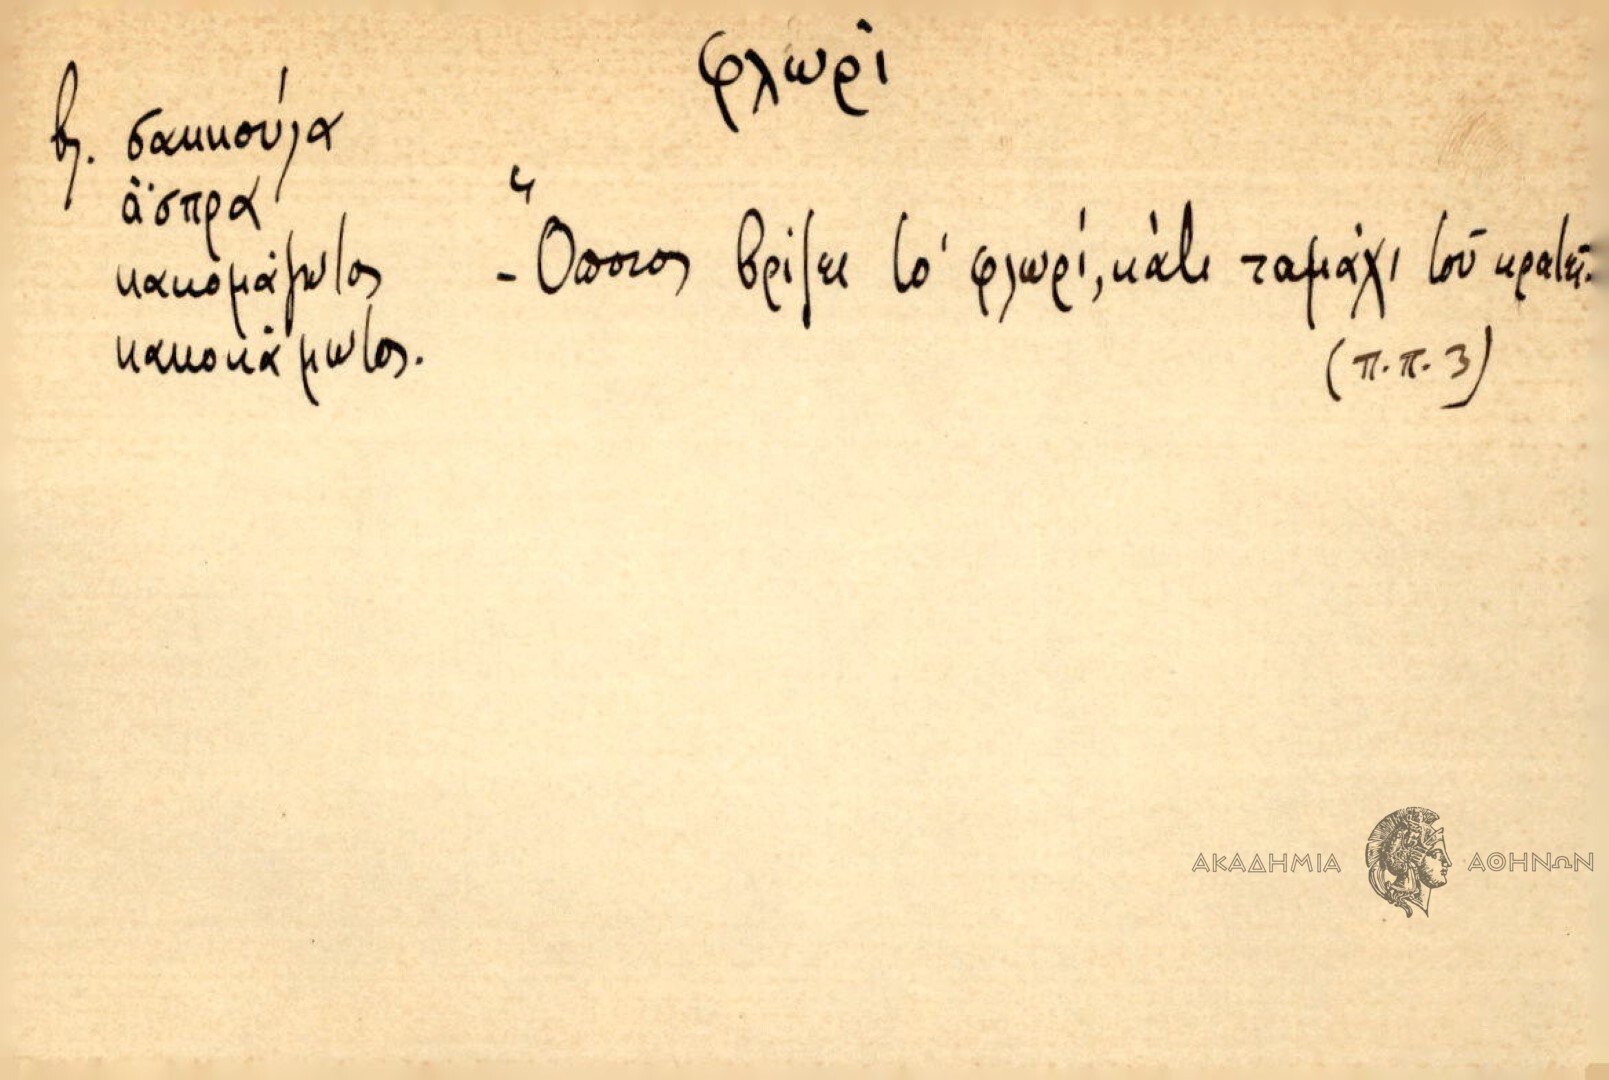 φλωρί
βλ. σακκούλα
ἄσπρα
κακομάζωτος
κακοκάμωτος.
- Ὅποιος βρίζει τὸ φλωρί, κάτι ταμάχι τοῦ κρατεῖ.
(π.π. 3)
ΑΚΑΔΗΜΙΑ ΑΘΗΝΩΝ